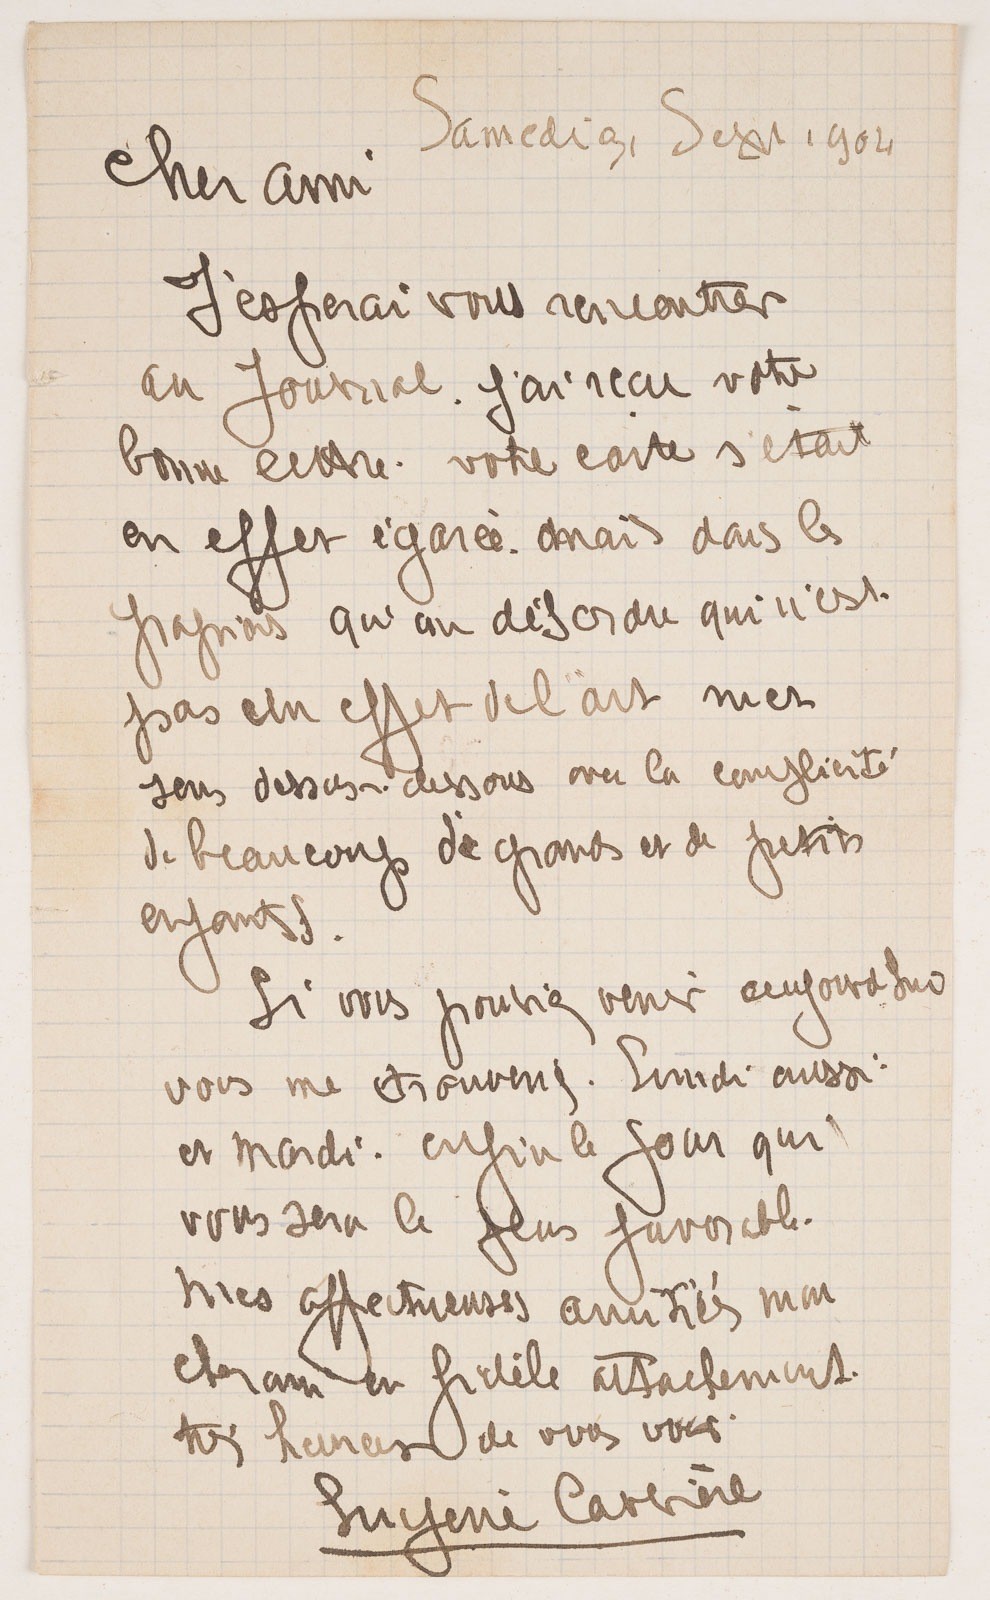 Samedi 3, Sept 1904
Cher ami
J'esperai vous rencontrer
au Journal. j'ai recu votre
bonne lettre. votre carte s'était
en effet égarée. mais dans les
papiers qu'un désordre qui n'est
pas un effet de l'art met
sens dessus-dessous avec la complicité
de beaucoup de grands et de petits
enfants.
Si vous pouviez venir aujourd'hui
vous me trouverez. Lundi aussi.
et Mardi. enfin le jour qui
vous sera le plus favorable.
Mes affectueuses amitiés mon
cher ami en fidèle attachement.
très heureux de vous voir.
Eugène Carrière